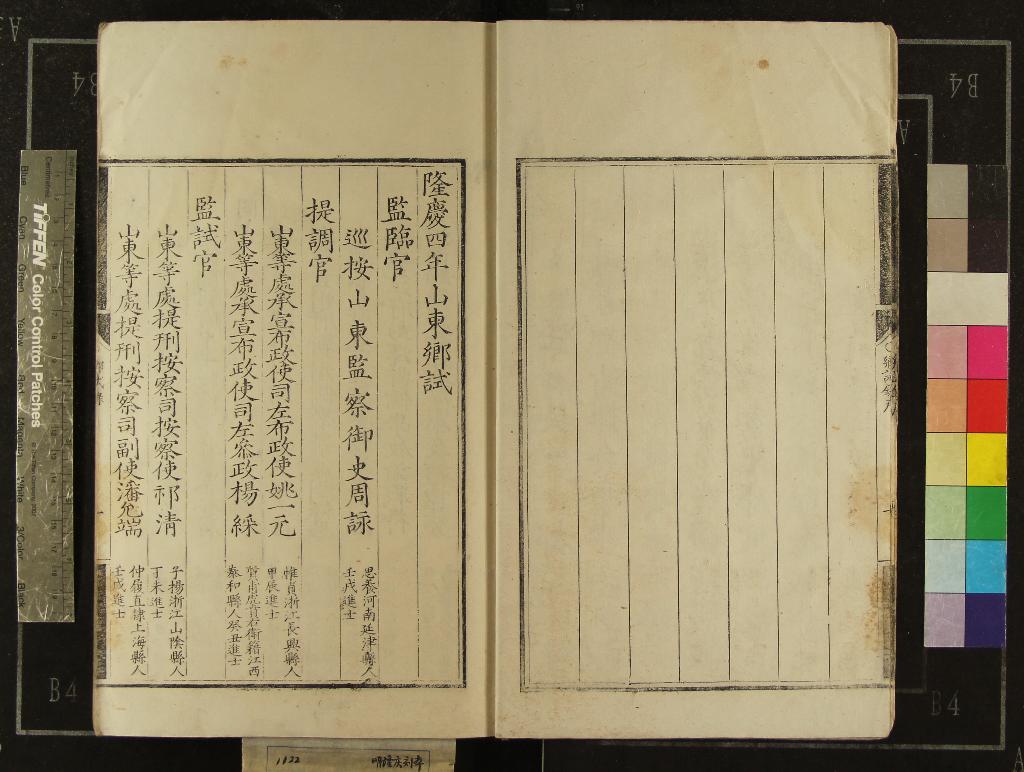 隆慶四年山東鄉試
監臨官
巡按山東監察御史周詠 思養河南延津縣人
壬戌進士
提調官
山東等處承宣布政使司左布政使姚一元 惟貞浙江長興縣人
甲辰進士
山東等處承宣布政使司左叅政楊綵 貴州衛籍江西
泰和縣人癸丑進士
監試官
山東等處提刑按察司按察使祁清 子揚浙江山陰縣人
丁未進士
山東等處提刑按察司副使潘允端 仲履直隸上海縣人
壬戌進士
B4
B4
B4
B4
TIFFEN Color Control Patches
Blue
Cyan
Green
Yellow
Red
Magenta
White
3/Color
Black
1122
明隆慶刻本